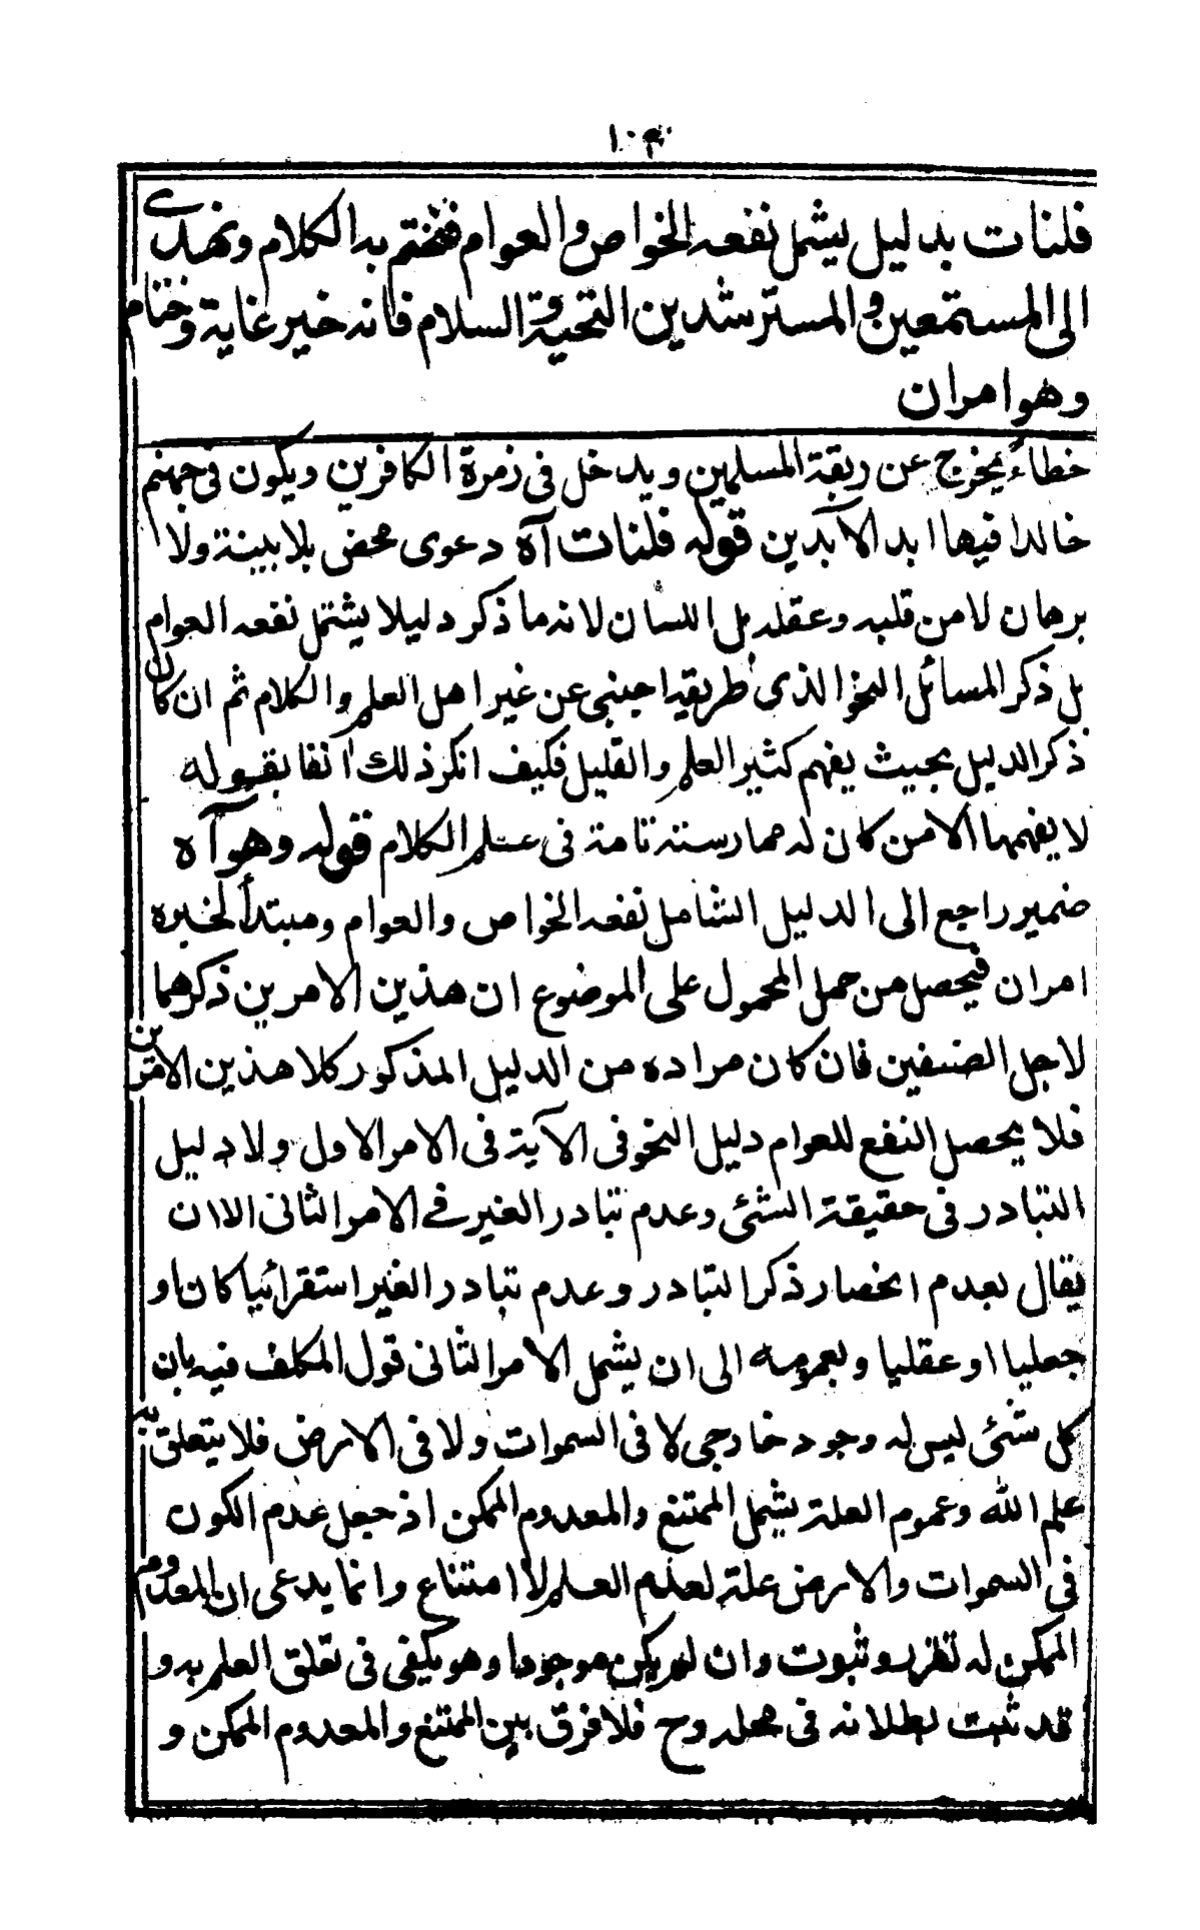 ١٠٤
فلنات بدليل يشمل نفعه الخواص والعوام فنختم به الكلام ونهدى
الى المستمعين والمسترشدين التحية والسلام فانه خير غاية وختام
وهو امران
خطاءً يخرج عن ربقة المسلمين ويدخل فى زمرة الكافرين ويكون فى جهنم
خالدا فيها ابد الآبدين قوله فلنات آه دعوى محض بلا بينة ولا
برهان لا من قلبه وعقله بل اللسان لانه ما ذكر دليلا يشتمل نفعه العوام
بل ذكر المسائل النحو الذى طريقه اجنبى عن غير اهل العلم والكلام ثم ان كان
ذكر الدليل بحيث يفهم كثير العلم والقليل فكيف انكر ذلك آنفا بقوله
لا يفهمها الا من كان له ممارسته تامة فى علم الكلام قوله وهو آه
ضمير راجع الى الدليل الشامل نفعه الخواص والعوام ومبتدأ لخبره
امران فيحصل من حمل المحمول على الموضوع ان هذين الامرين ذكرهما
لاجل الصنفين فان كان مراده من الدليل المذكور كلا هذين الامرين
فلا يحصل النفع للعوام دليل النحو فى الآية فى الامر الاول ولا دليل
التبادر فى حقيقة الشئى وعدم تبادر الغير فے الامر الثانى الا ان
يقال بعدم انحصار ذكر التبادر وعدم تبادر الغير استقرائيا كان او
جعليا او عقليا وبعمومه الى ان يشمل الامر الثانى قول المكلف فيه بان
كل شئى ليس له وجود خارجى لا فى السموات ولا فى الارض فلا يتعلق به
علم الله وعموم العلة يشمل الممتنع والمعدوم الممكن اذ جعل عدم الكون
فى السموات والارض علة لعدم العلم لا امتناع وانما يدعى ان المعدوم
الممكن له تقرر وثبوت وان لم يكن موجودا وهو يكفى فى تعلق العلم به و
قد ثبت بطلانه فى محله وح فلا فرق بين الممتنع والمعدوم الممكن و